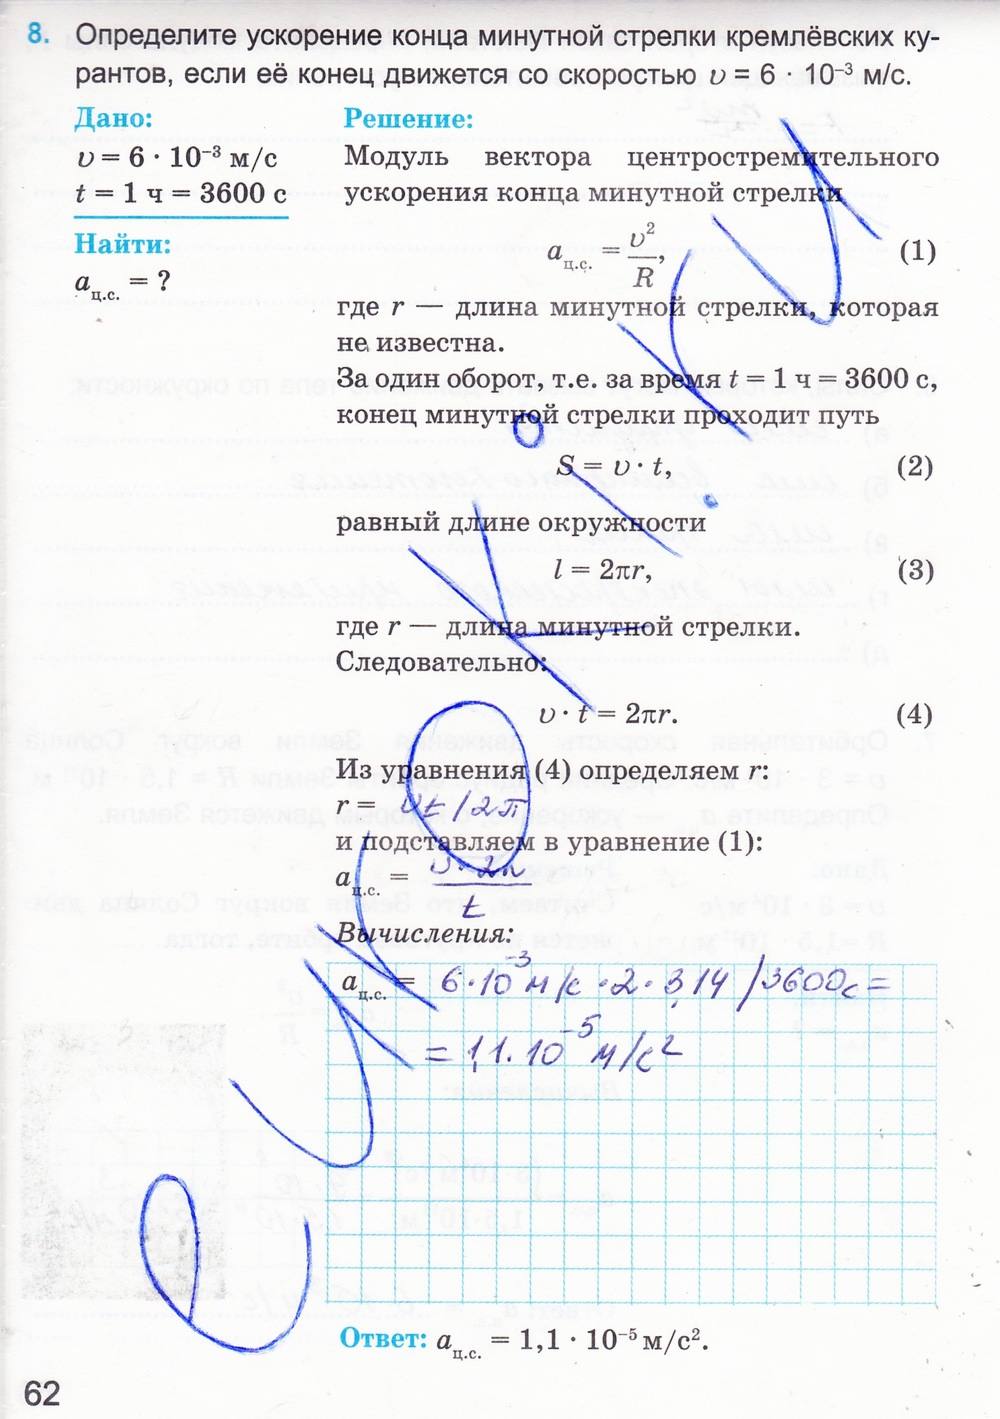 8. Определите ускорение конца минутной стрелки кремлёвских ку-
рантов, если её конец движется со скоростью υ = 6 · 10⁻³ м/с.
Дано:
υ = 6 · 10⁻³ м/с
t = 1 ч = 3600 с
Найти:
aц.с. = ?
Решение:
Модуль вектора центростремительного
ускорения конца минутной стрелки
aц.с. = υ²/R, (1)
где r — длина минутной стрелки, которая
не известна.
За один оборот, т.е. за время t = 1 ч = 3600 с,
конец минутной стрелки проходит путь
S = υ · t, (2)
равный длине окружности
l = 2πr, (3)
где r — длина минутной стрелки.
Следовательно:
υ · t = 2πr. (4)
Из уравнения (4) определяем r:
r = υt/2π
и подставляем в уравнение (1):
aц.с. = υ·2π/t
Вычисления:
aц.с. = 6·10⁻³ м/с · 2 · 3,14 / 3600с =
= 1,1·10⁻⁵ м/с²
Ответ: aц.с. = 1,1 · 10⁻⁵ м/с².
62